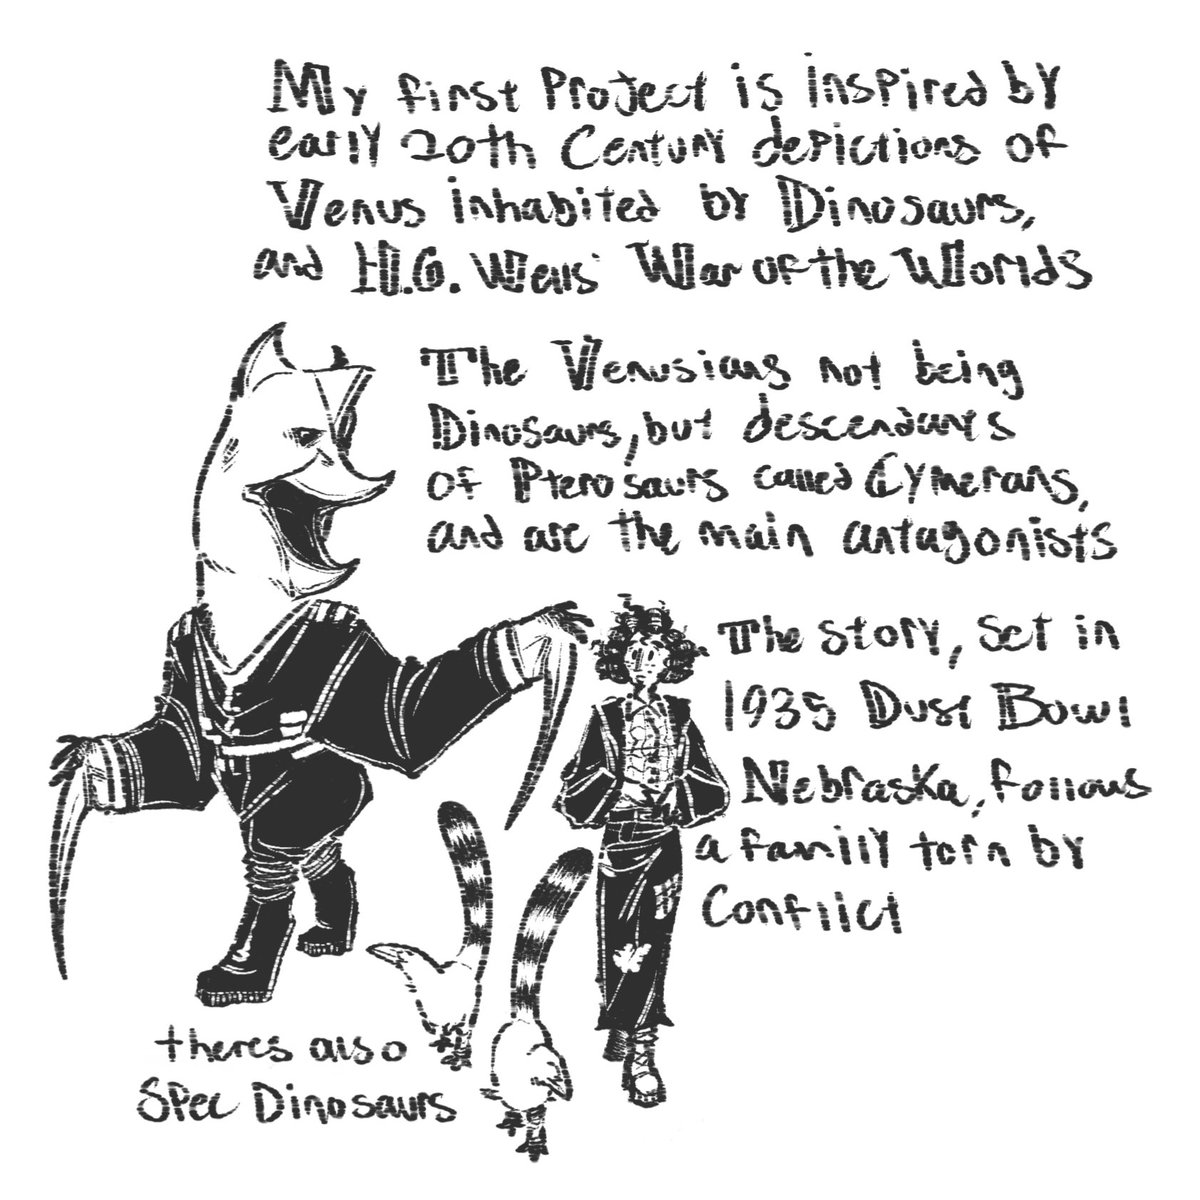 My first Project is inspired by
early 20th Century depictions of
Venus inhabited by Dinosaurs,
and H.G. Wells' War of the Worlds
The Venusians not being
Dinosaurs, but descendants
of Pterosaurs called Cymerans,
and are the main antagonists
The story, set in
1935 Dust Bowl
Nebraska, follows
a family torn by
Conflict
theres also
Spec Dinosaurs